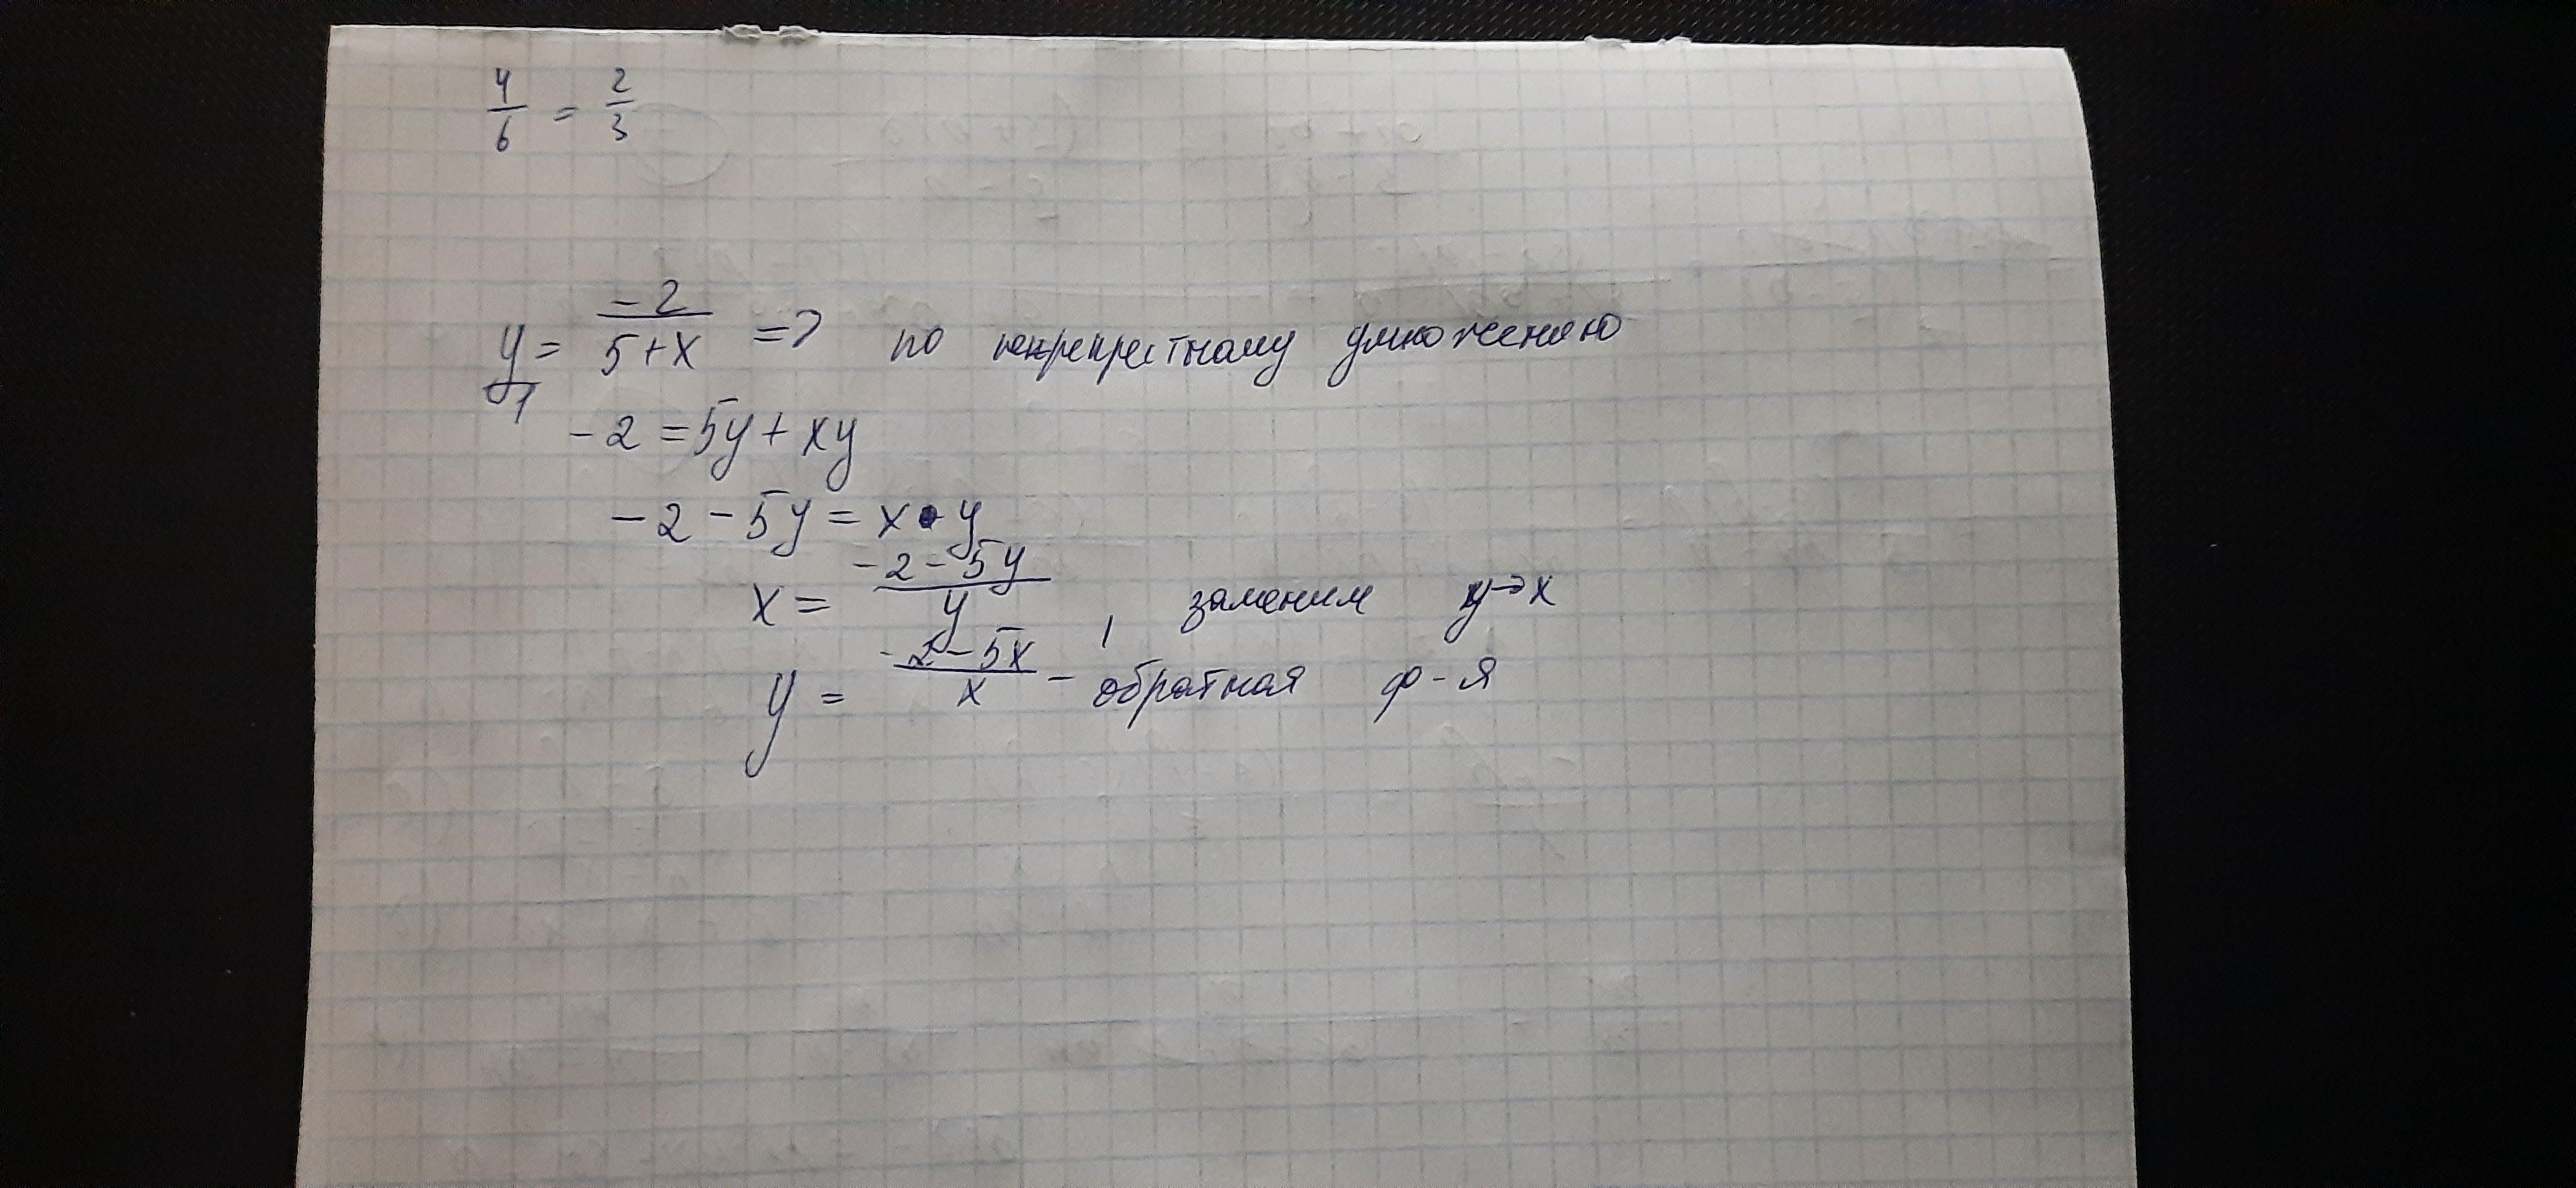 4/6 = 2/3
y/1 = -2/(5+x) => по перекрестному умножению
-2 = 5y + xy
-2 - 5y = x • y
x = (-2-5y)/y , заменим y→x
y = (-2-5x)/x - обратная ф-я